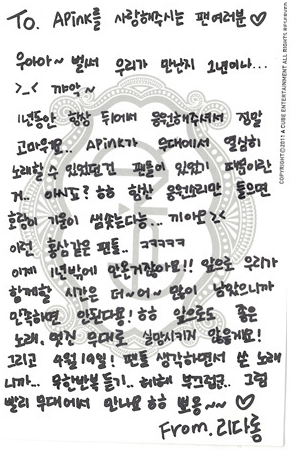 To. APink를 사랑해주시는 팬여러분♡
우아아~ 벌써 우리가 만난지 1년이나...
>_< 꺄악~
1년동안 항상 뒤에서 응원해주셔서 정말
고마워요.. APink가 무대에서 열심히
노래할 수 있었던건 팬들이 있었기 때문이란
거.. 아시죠? ㅎㅎ 항상 응원소리만 들으면
호랑이 기운이 샘솟는다능... 끼아오 ><
이런 홍삼같은 팬들.. ㅋㅋㅋㅋㅋ
이제 1년밖에 안온거잖아요!! 앞으로 우리가
함께할 시간은 더~어~ 많이 남았으니까
만족하면 안된다용! ㅎㅎ 앞으로도 좋은
노래, 멋진 무대로 실망시키지 않을게요!
그리고 4월 19일! 팬들 생각하면서 쓴 노래
니까... 무한반복 듣기.. 헤헤 부끄럽규.. 그럼
빨리 무대에서 만나요 ㅎㅎ 뽀옹~~ ♡
From. 리다롱
COPYRIGHTⓒ2011 A CUBE ENTERTAINMENT ALL RIGHTS RESERVED